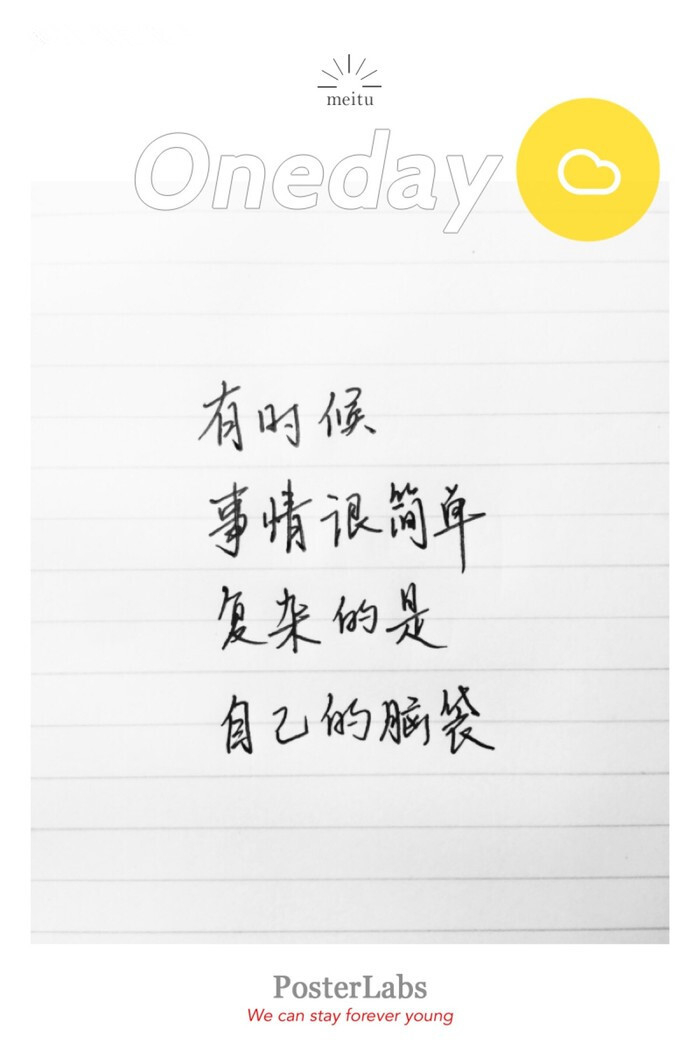 meitu
Oneday
有时候
事情很简单
复杂的是
自己的脑袋
PosterLabs
We can stay forever young